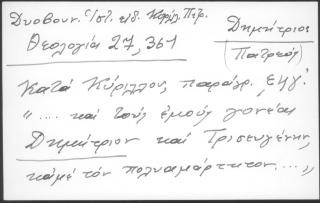 Δυοβουν. εἰς τ. εἰδ. Κυρίλ. Πέτρ.
Θεολογία 27, 351
Δημήτριος
(Πατρεύς)
Κατά Κύριλλον, παράγρ. ΕΗΓ΄
"... καί τούς ἐμούς γονεῖς
Δημήτριον καί Τρισευγένην,
κἀμέ τόν πολυαμάρτητον...."